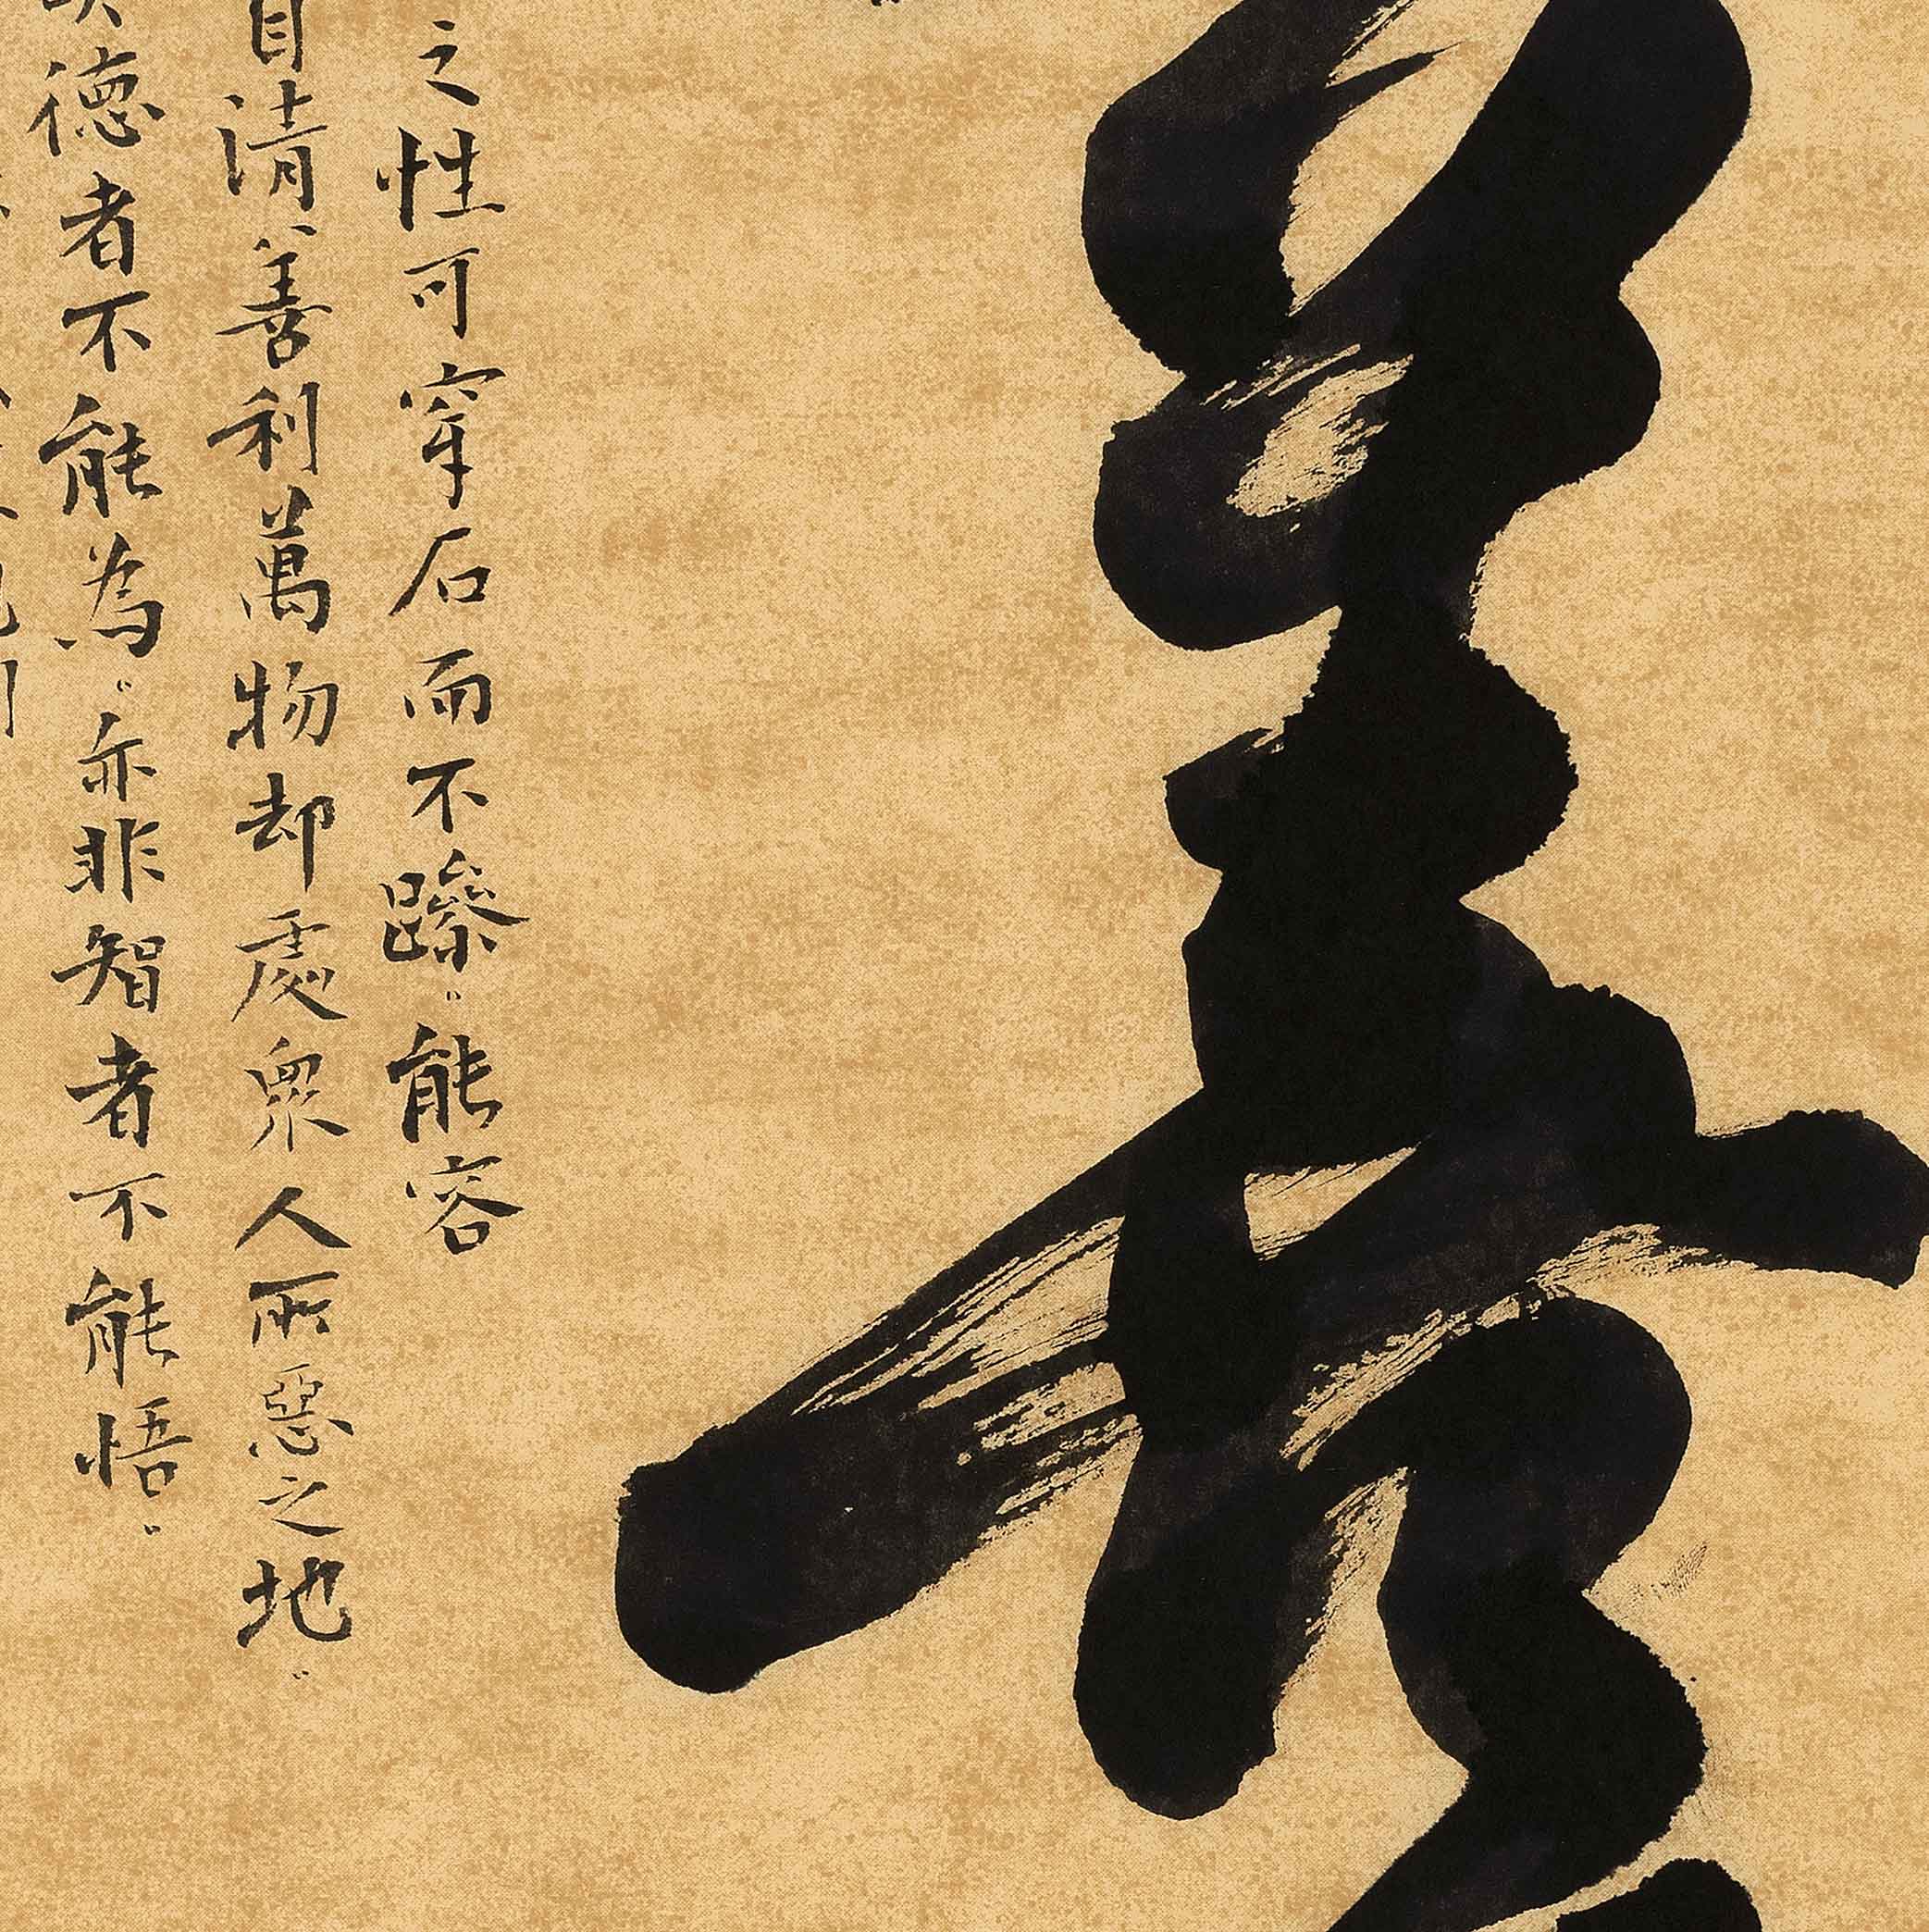 善
之性可穿石而不躁。能容
自清。善利萬物却處眾人所惡之地。
德者不能為。亦非智者不能悟。